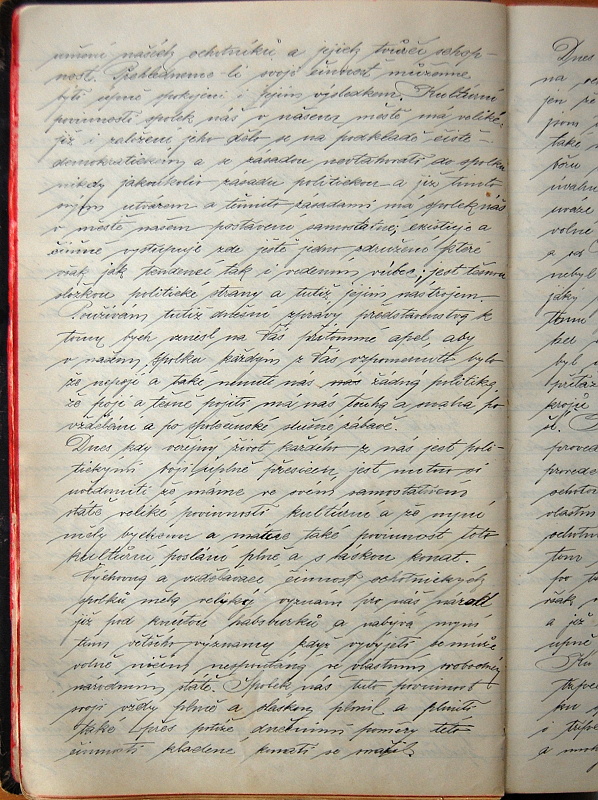 umění našich ochotníků a jejich tvůrčí schop-
nosti. Přehlédneme-li svoji činnost můžeme
býti úplně spokojeni i s jejím výsledkem. Kulturní
povinnosti spolek náš v našem městě má veliké
již i založení jeho dálo se na podkladě čistě-
demokratickém a se zásadou nevtahovati do spolku
nikdy jakoukoliv zásadu politickou a již tímto
svým utvořem a těmito zásadami má spolek náš
v městě našem postavení samostatné, existuje a
činně vystupuje zde ještě jedno sdružení které
však jak tendencí tak i vedením vůbec, jest
složkou politické strany a tudíž jejím nástrojem.
Používám tudíž dnešní zprávy představenstva k
tomu bych vznesl na Vás přítomné apel, aby
v našem spolku každým z Vás vzpomenuto bylo
že nepojí a také nenutí nás nás žádná politika,
že pojí a těsně pojiti má nás touha a snaha po
vzdělání a po společenské slušné zábavě.
Dnes kdy veřejný život každého z nás jest poli-
tickými boji úplně přesicen, jest nutno si
uvědomiti že máme ve svém samostatném
státě veliké povinnosti kulturní a že nyní
měly bychom a máme také povinnost toto
kulturní poslání plně a s láskou konat.
Výchovná a vzdělávací činnost ochotnických
spolků měla veliký význam pro náš národ
již pod knutou habsburků a nabývá nyní
tím většího významu když vyvíjeti se může
volně ničím nespoutaná, ve vlastním svobodném
národním státě. Spolek náš tuto povinnost
svoji vždy plně a s láskou plnil a plniti
také i přes potíže dnešními poměry této
činnosti kladené konati se snažil.
Dnes
na
jen že
jsem
také
boru
úvahu
uváže
volně
a od
nebyl
jaký
tomu
byl
přitaž
kroje
proved
provede
ochotn
vlastn
ochotn
tom
po
však
a již
úplně
Ku
i
a mnoh